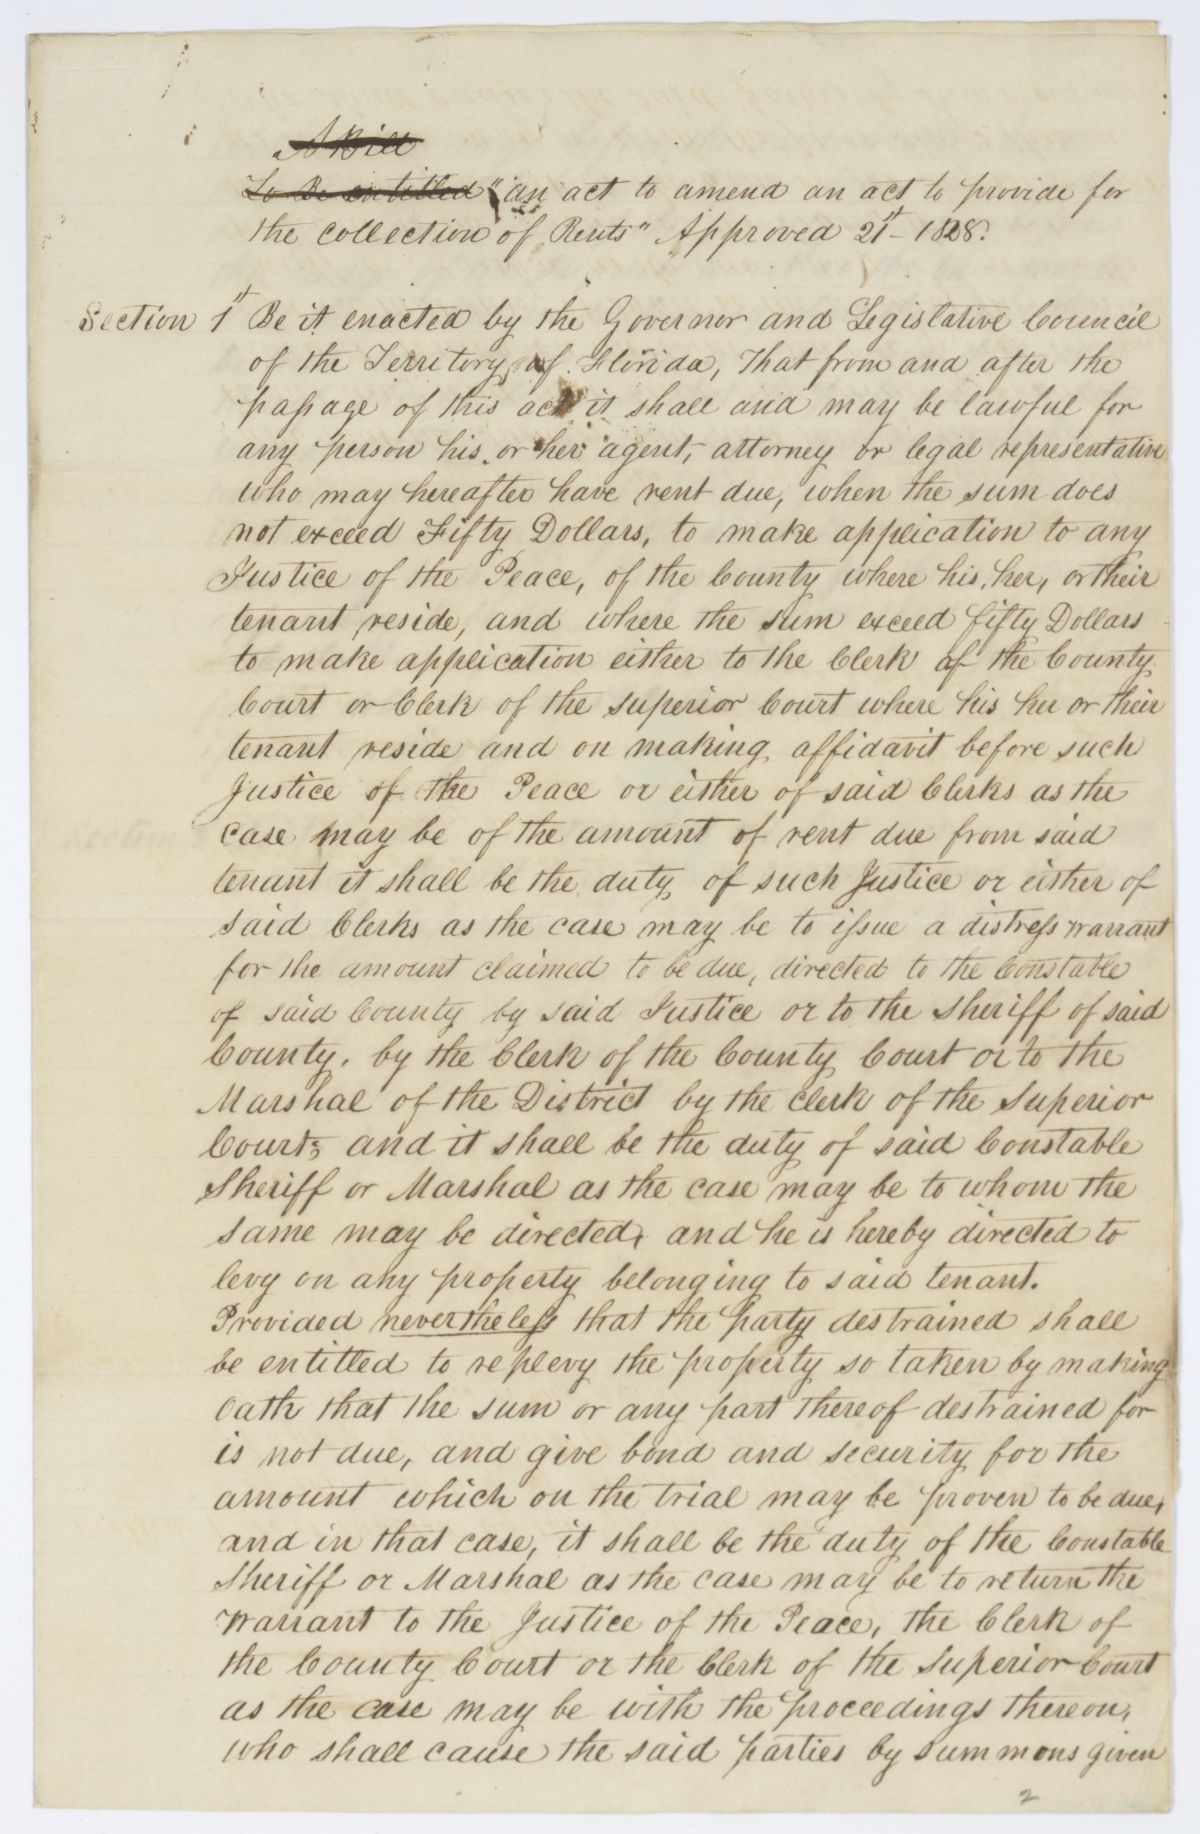 A Bill
To Be entitled "an act to amend an act to provide for
the collection of Rents" Approved 21st - 1828.
Section 1st Be it enacted by the Governor and Legislative Council
of the Territory of Florida, That from and after the
passage of this act it shall and may be lawful for
any person his or her agent, attorney or legal representative
who may hereafter have rent due, when the sum does
not exceed Fifty Dollars, to make application to any
Justice of the Peace, of the County where his, her, or their
tenant reside, and where the sum exceed fifty Dollars
to make application either to the Clerk of the County
Court or Clerk of the superior Court where his her or their
tenant reside and on making affidavit before such
Justice of the Peace or either of said Clerks as the
case may be of the amount of rent due from said
tenant it shall be the duty of such Justice or either of
said Clerks as the case may be to issue a distress warrant
for the amount claimed to be due, directed to the Constable
of said County by said Justice or to the Sheriff of said
County, by the Clerk of the County Court or to the
Marshal of the District by the clerk of the Superior
Court; and it shall be the duty of said Constable
Sheriff or Marshal as the case may be to whom the
same may be directed, and he is hereby directed to
levy on any property belonging to said tenant.
Provided nevertheless that the party destrained shall
be entitled to replevy the property so taken by making
oath that the sum or any part thereof destrained for
is not due, and give bond and security for the
amount which on the trial may be proven to be due,
and in that case, it shall be the duty of the Constable
Sheriff or Marshal as the case may be to return the
warrant to the Justice of the Peace, the Clerk of
the County Court or the Clerk of the Superior Court
as the case may be with the proceedings thereon,
who shall cause the said parties by summons given
2